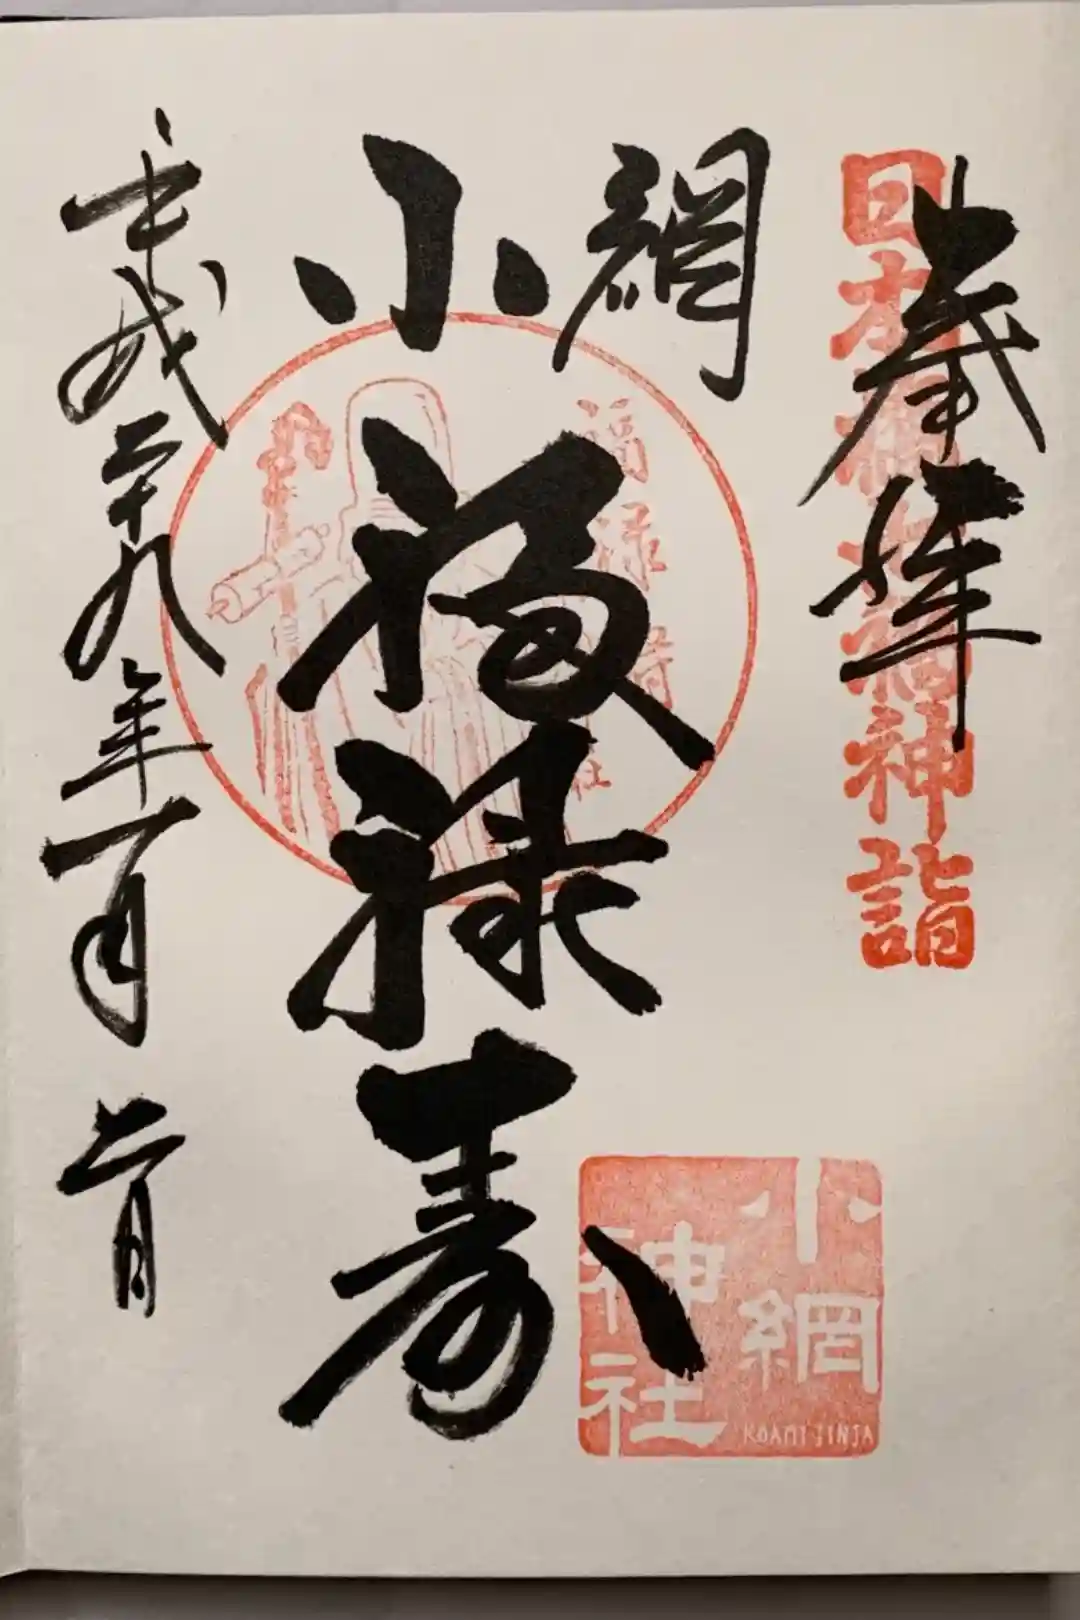 奉拝
日本橋七福神詣
小網
福禄寿
福禄寿
社
小網
神社
KOAMI JINJA
平成二十九年一月